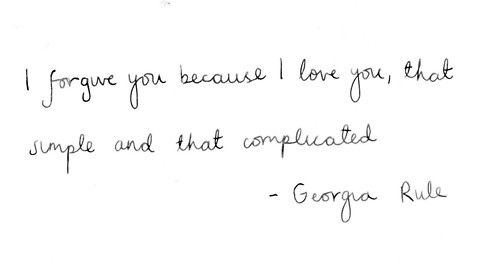 I forgive you because I love you, that
simple and that complicated
- Georgia Rule